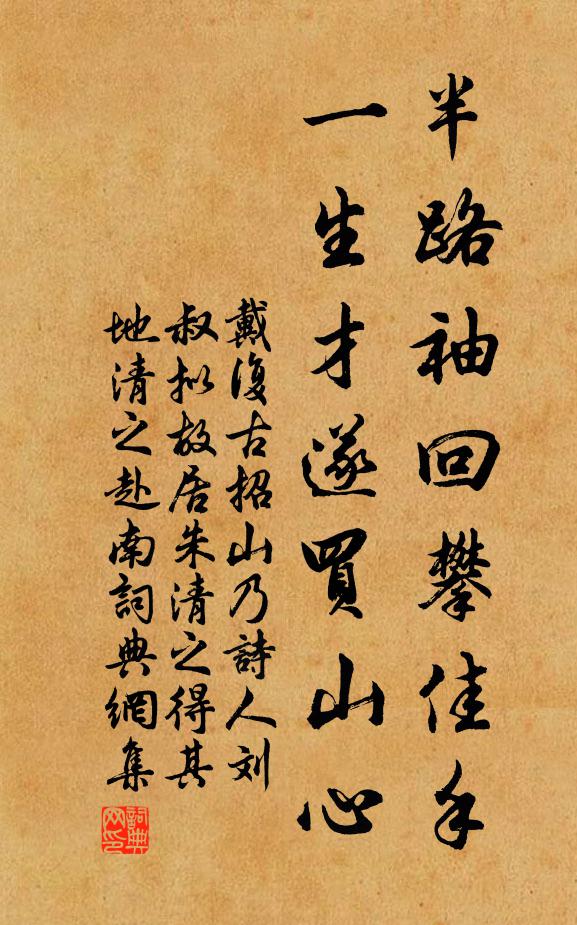 半路袖回攀佳手
一生才遂買山心
戴復古招山乃詩人刘
叔拟故居朱清之得其
地清之赴南詞典網集
詞典
网印